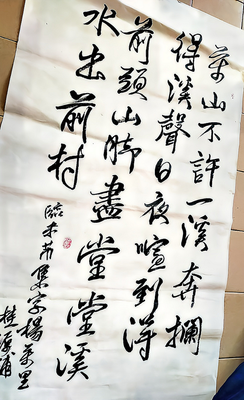 萬山不許一溪奔攔
得溪聲日夜喧到得
前頭山脚盡堂堂溪
水出前村
臨米芾集字楊萬里
桂源